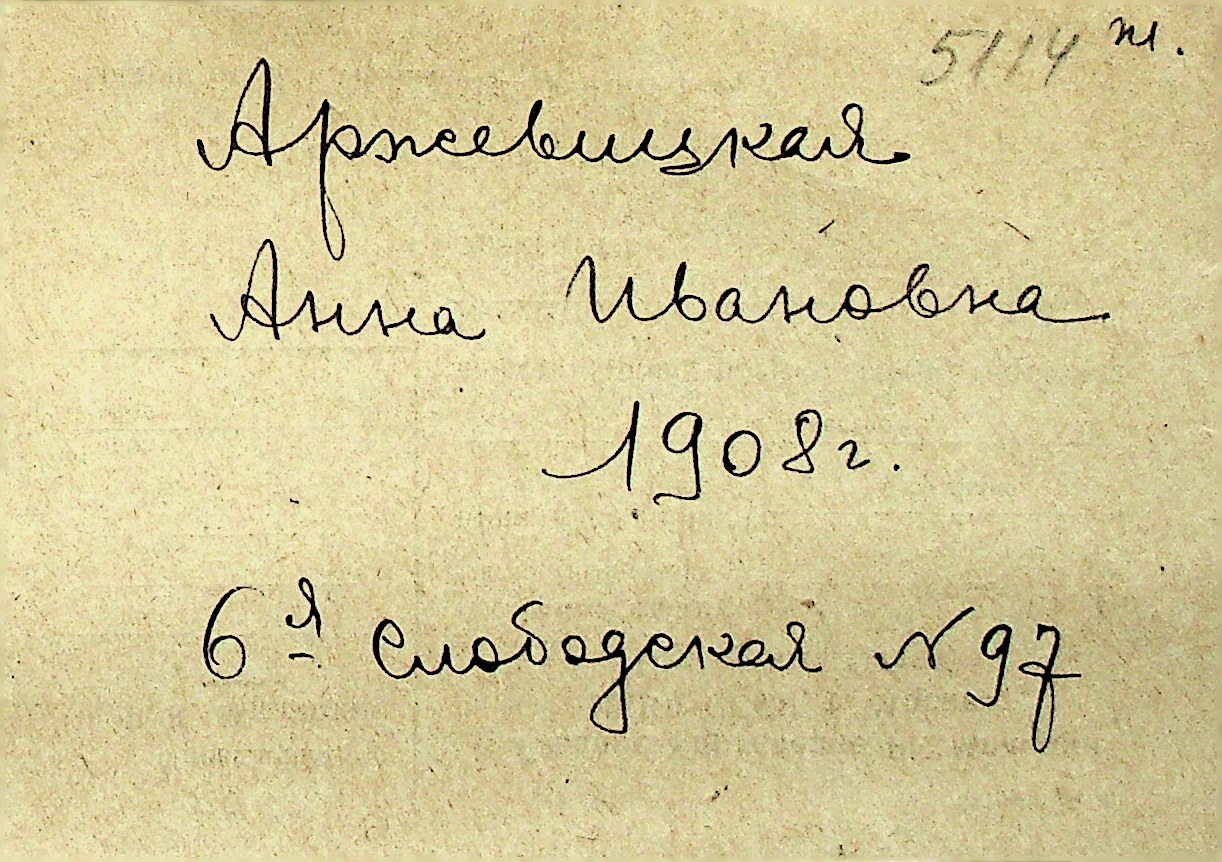 5114 ж.
Аржевицкая
Анна Ивановна
1908 г.
6-я Слободская № 97